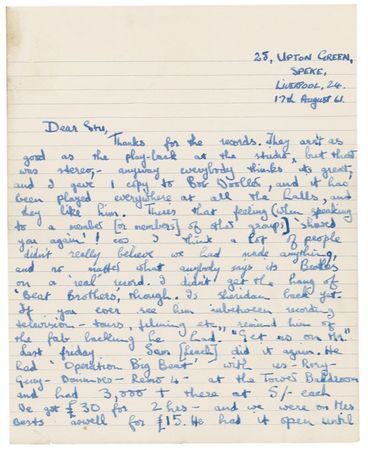 25, UPTON GREEN,
SPEKE,
LIVERPOOL, 24.
17th August 61.
Dear Stu,
Thanks for the records. They arn't as
good as the play-back at the studio, but that
was stereo, - anyway everybody thinks its great,
and I gave 1 copy to Bob Wooler, and it has
been played everywhere at all the halls, and
they like him. Theres that feeling (when speaking
to a member [or members] of other groups) 'shaved
you again'! cos I think a lot of people
didn't really believe we had made anything,
and no matter what anybody says its Beatles
on a 'real' record. I didn't get the hang of
'Beat Brothers', though. Is sheridan back yet.
If you ever see him inbetween recording
television - tours, filming etc., remind him of
the fab backing he had "Get us on Mr."
Last friday Sam [Leach] did it again. He
had 'Operation Big Beat' with us - Rory-
Gerry - Dominoes - Remo 4 - at the Tower Ballroom
and had 3,000 + there at 5/- each
We got £30 for 2 hrs - and we were on Mrs
Bests aswell for £15. He had it open until